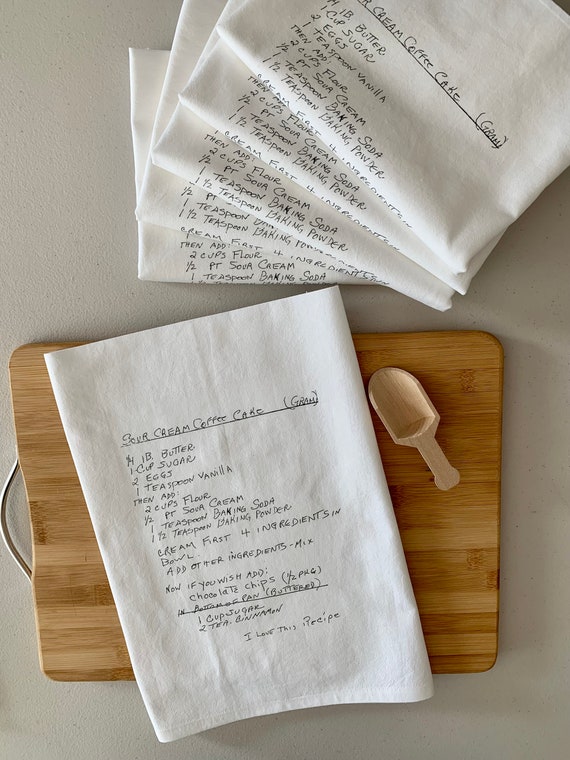 1/4 lB. BUTTER
1 CUP SUGAR
2 EGGS
1 TEASPOON VANILLA
THEN ADD:
2 CUPS FLOUR
1/2 PT SOUR CREAM
1 TEASPOON BAKING SODA
1 1/2 TEASPOON BAKING POWDER
SOUR CREAM COFFEE CAKE (GRAM)
CREAM FIRST 4 INGREDIENTS IN
THEN ADD:
2 CUPS FLOUR
1/2 PT SOUR CREAM
1 TEASPOON BAKING SODA
1 1/2 TEASPOON BAKING POWDER
CREAM FIRST 4 INGREDIENTS IN
THEN ADD:
2 CUPS FLOUR
1/2 PT SOUR CREAM
1 TEASPOON BAKING SODA
1 1/2 TEASPOON BAKING POWDER
CREAM FIRST 4 INGREDIENTS IN
THEN ADD:
2 CUPS FLOUR
1/2 PT SOUR CREAM
1 TEASPOON BAKING SODA
SOUR CREAM COFFEE CAKE (GRAM)
1/4 lB. BUTTER
1 CUP SUGAR
2 EGGS
1 TEASPOON VANILLA
THEN ADD:
2 CUPS FLOUR
1/2 PT SOUR CREAM
1 TEASPOON BAKING SODA
1 1/2 TEASPOON BAKING POWDER
CREAM FIRST 4 INGREDIENTS IN
BOWL.
ADD OTHER INGREDIENTS - MIX
NOW IF YOU WISH ADD:
CHOCOLATE CHIPS (1/2 PKG)
IN BOTTOM OF PAN (BUTTERED)
1 CUP SUGAR
2 TEA. CINNAMON
I LOVE THIS RECIPE